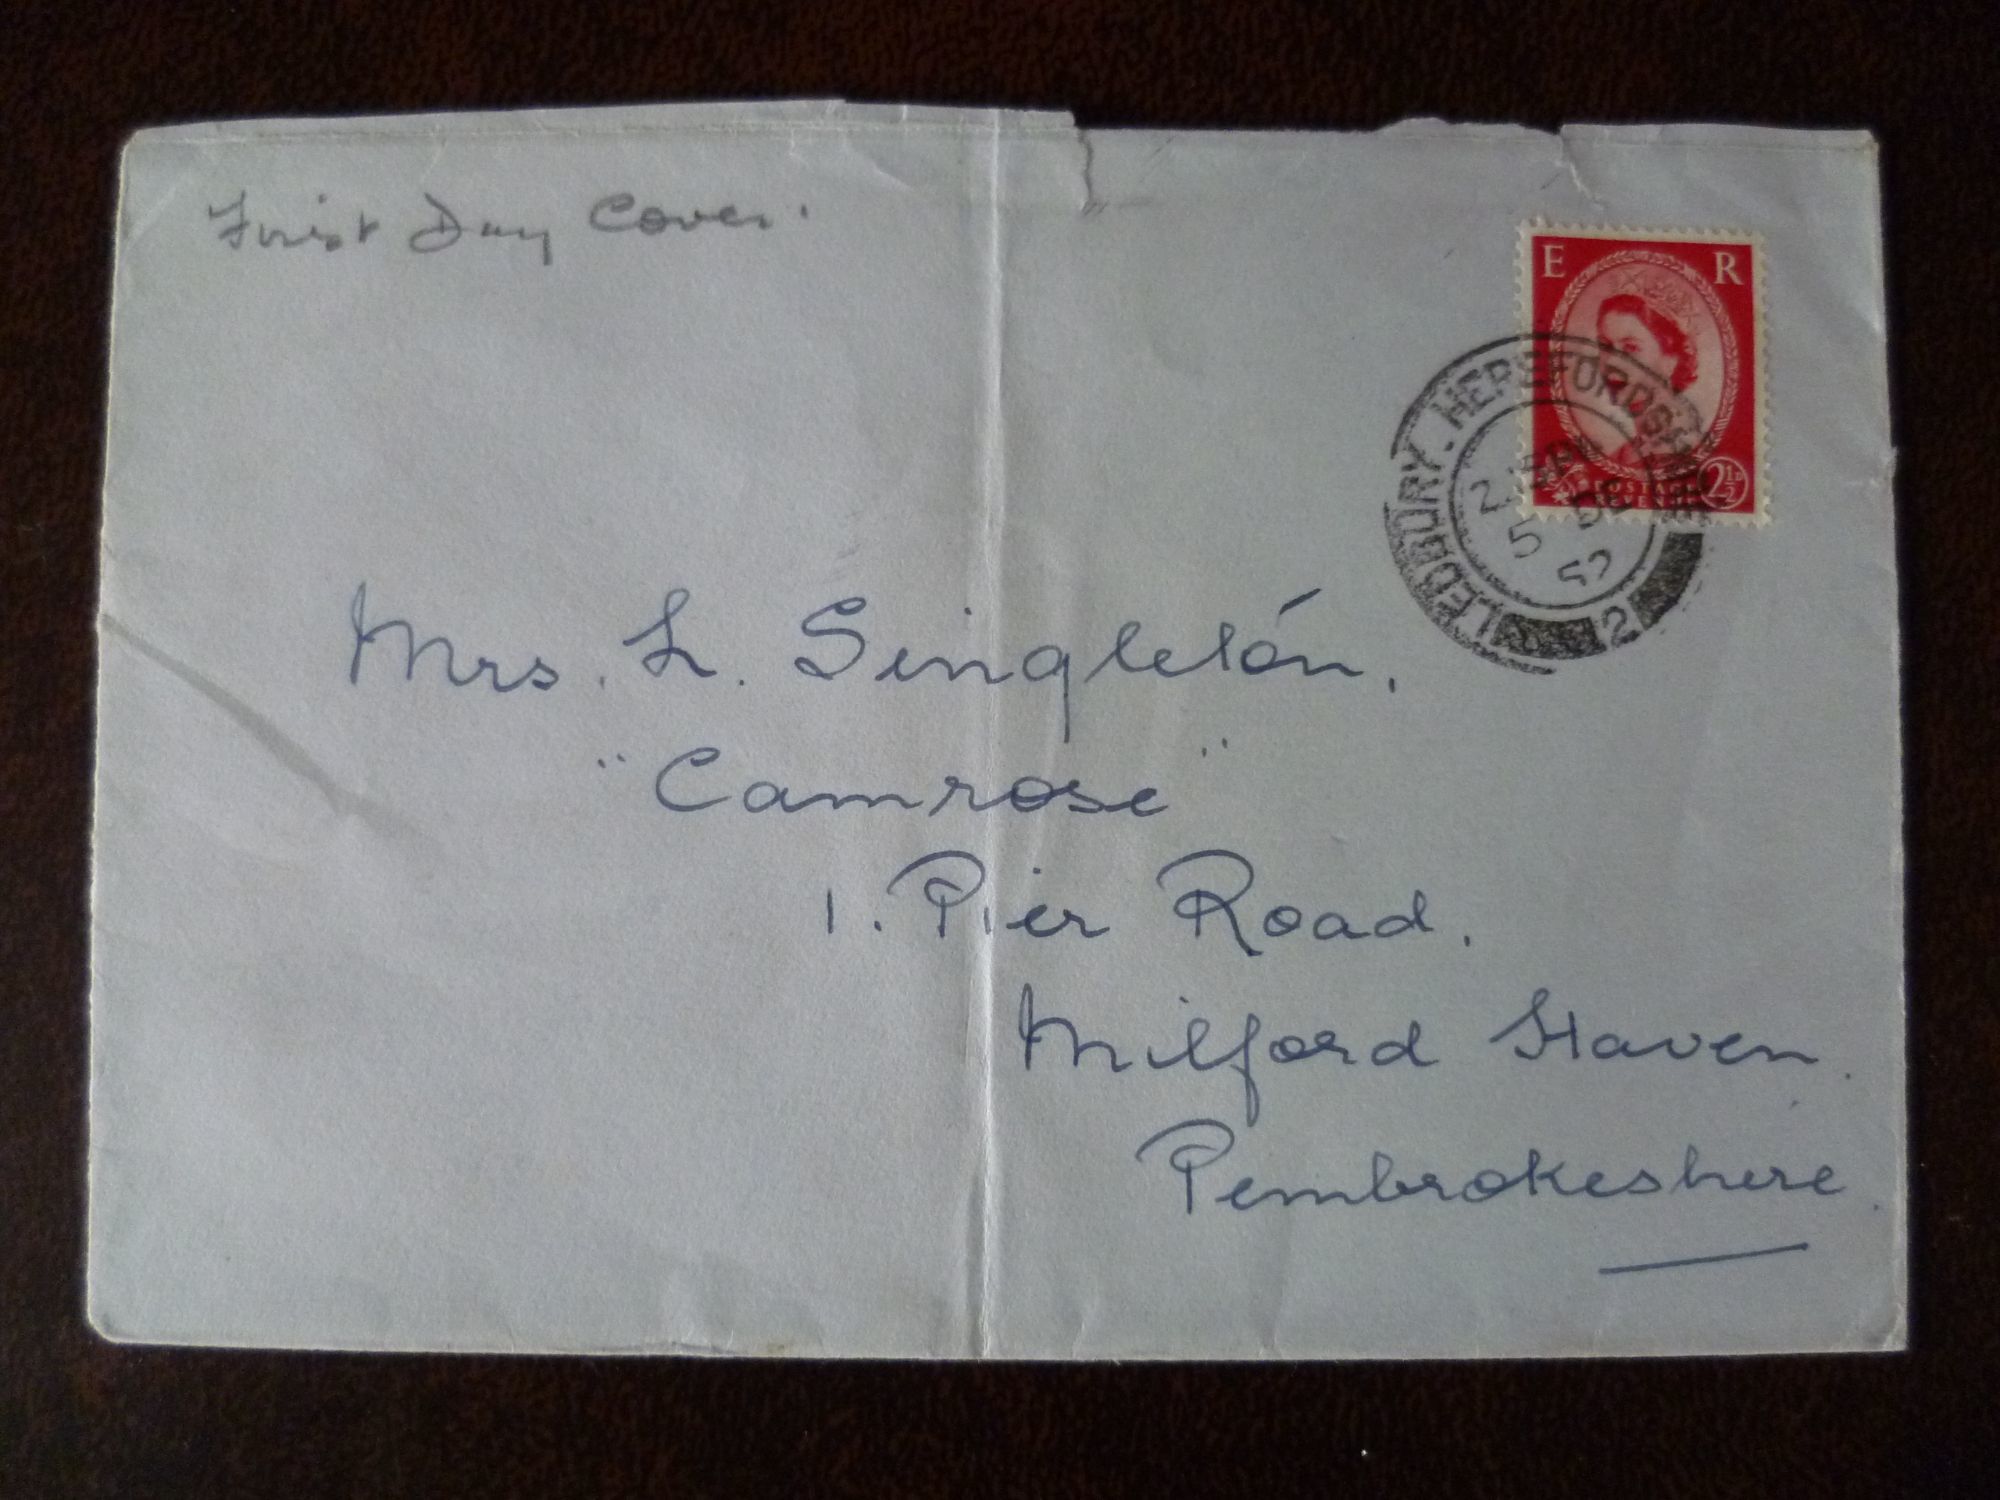 First Day Cover.
E R
POSTAGE REVENUE
2½D
LEDBURY. HEREFORDSHIRE
5 DE
52
2
Mrs. L. Singleton.
"Camrose"
1. Pier Road.
Milford Haven.
Pembrokeshire.